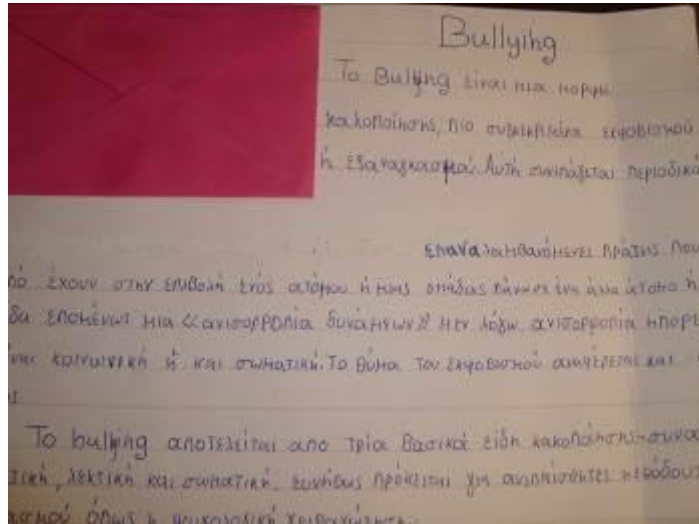 Bullying
Το Bullying είναι μια μορφή
κακοποίησης, πιο συγκεκριμένα εκφοβισμού
ή εξαναγκασμού. Αυτή συνιπάζεται περιοδικά
επαναλαμβανόμενες πράξεις που
πό έχουν στην επιβολή ενός ατόμου ή μιας ομάδας πάνω σε ένα άλλο άτομο ή
δα επομένως μια «ανισορροπία δυνάμεων» Η εν λόγω ανισορροπία μπορεί
είναι κοινωνική ή και σωματική. Το θύμα του εκφοβισμού αναφέρεται και
Το bullying αποτελείται απο τρία βασικά είδη κακοποίησης-συναι
τική, λεκτική και σωματική. Συνήθως πρόκειται για μεθόδους
ασμού όπως η ψυχολογική χειραγώγηση.